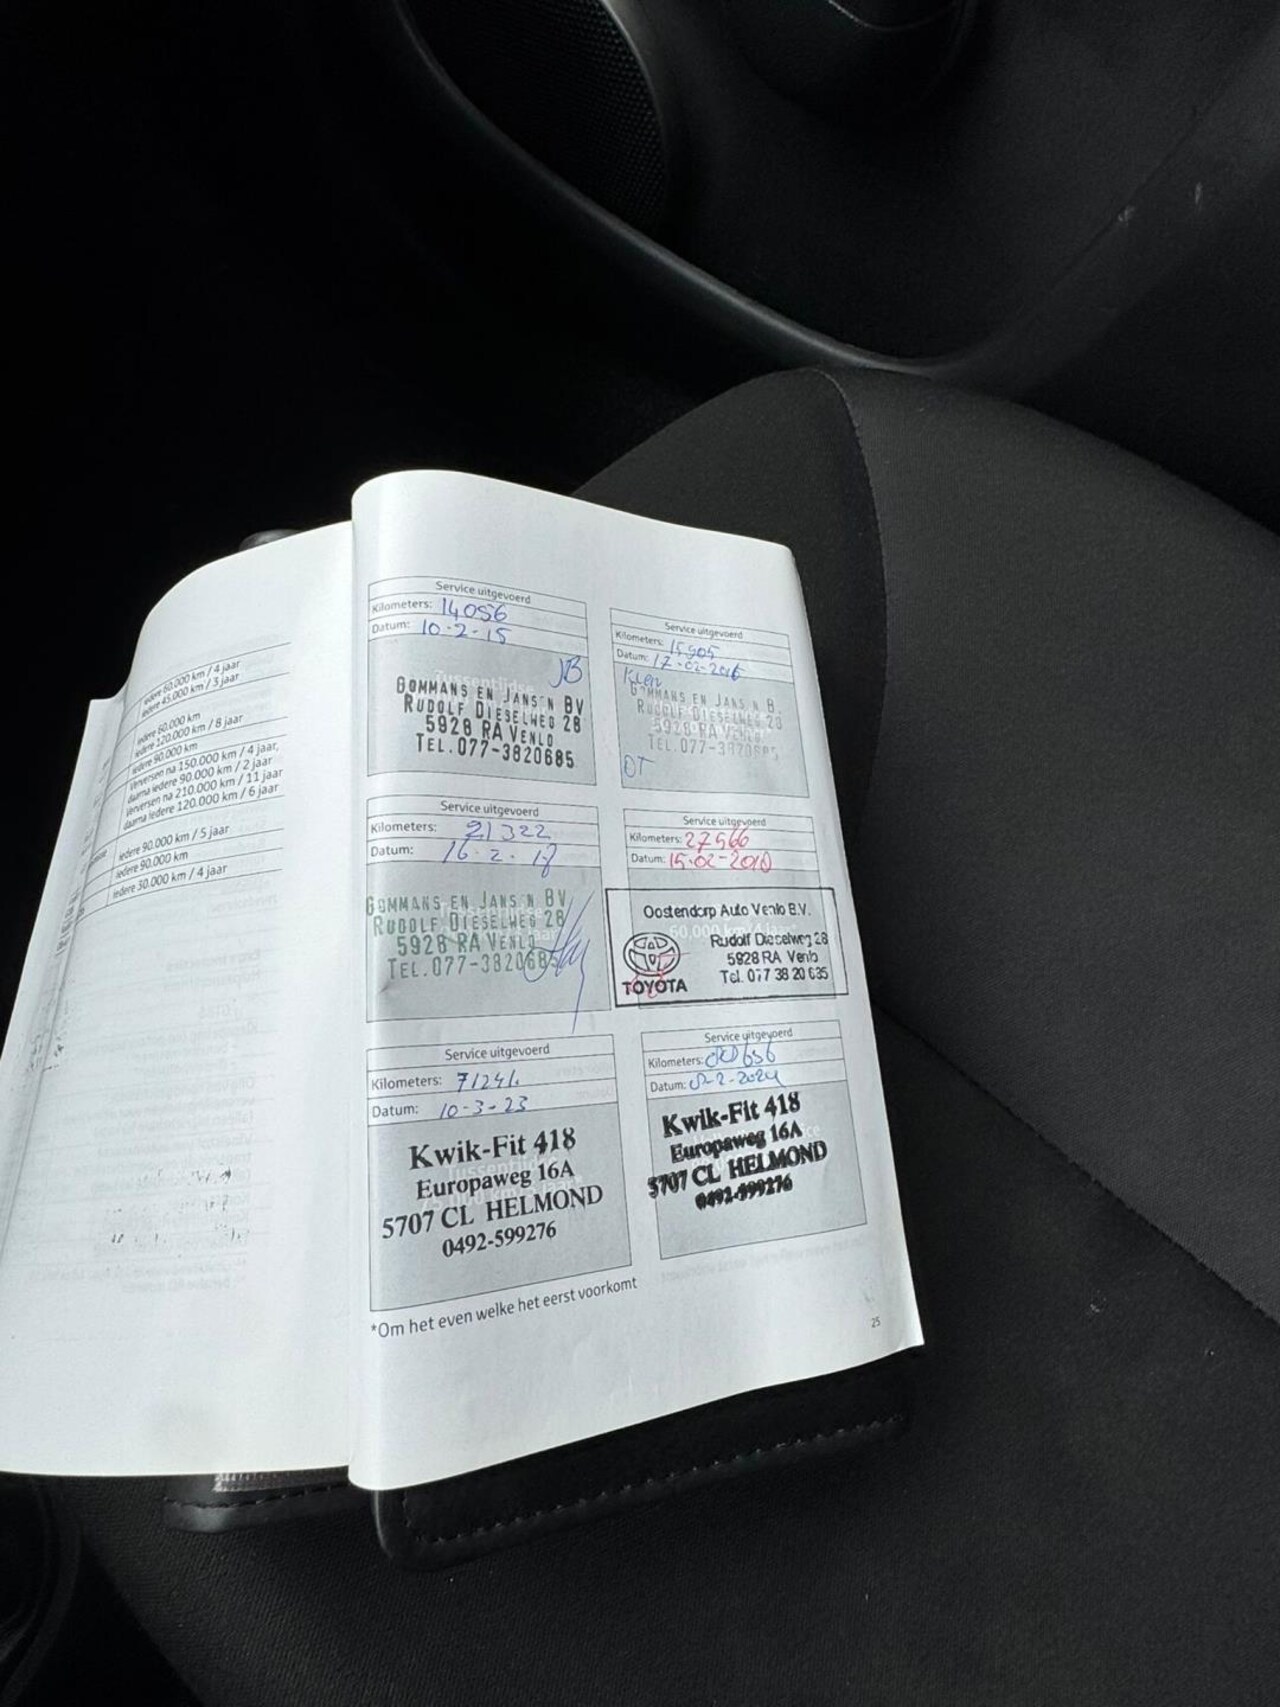 iedere 60.000 km / 4 jaar
iedere 45.000 km / 3 jaar
iedere 60.000 km
iedere 120.000 km / 8 jaar
iedere 90.000 km
Verversen na 150.000 km / 4 jaar,
daarna iedere 90.000 km / 2 jaar
Verversen na 210.000 km / 11 jaar
daarna iedere 120.000 km / 6 jaar
iedere 90.000 km / 5 jaar
iedere 90.000 km
iedere 30.000 km / 4 jaar
Service uitgevoerd
Kilometers: 14056
Datum: 10-2-15
JB
GOMMANS EN JANSEN BV
RUDOLF DIESELWEG 28
5928 RA VENLO
TEL.077-3820685
Service uitgevoerd
Kilometers: 15905
Datum: 17-02-2016
Klein
GOMMANS EN JANSEN B.
RUDOLF DIESELWEG 28
5928 RA VENLO
TEL.077-3820685
DT
Service uitgevoerd
Kilometers: 21322
Datum: 16-2-17
GOMMANS EN JANSEN BV
RUDOLF DIESELWEG 28
5928 RA VENLO
TEL.077-3820685
Service uitgevoerd
Kilometers: 27566
Datum: 15-02-2018
60,000 km
Oostendorp Auto Venlo B.V.
Rudolf Dieselweg 28
5928 RA Venlo
Tel. 077 38 20 685
TOYOTA
Service uitgevoerd
Kilometers: 71241
Datum: 10-3-23
Kwik-Fit 418
Europaweg 16A
5707 CL HELMOND
0492-599276
Service uitgevoerd
Kilometers:
Datum: 2-2024
Kwik-Fit 418
Europaweg 16A
5707 CL HELMOND
0492-599276
*Om het even welke het eerst voorkomt
25